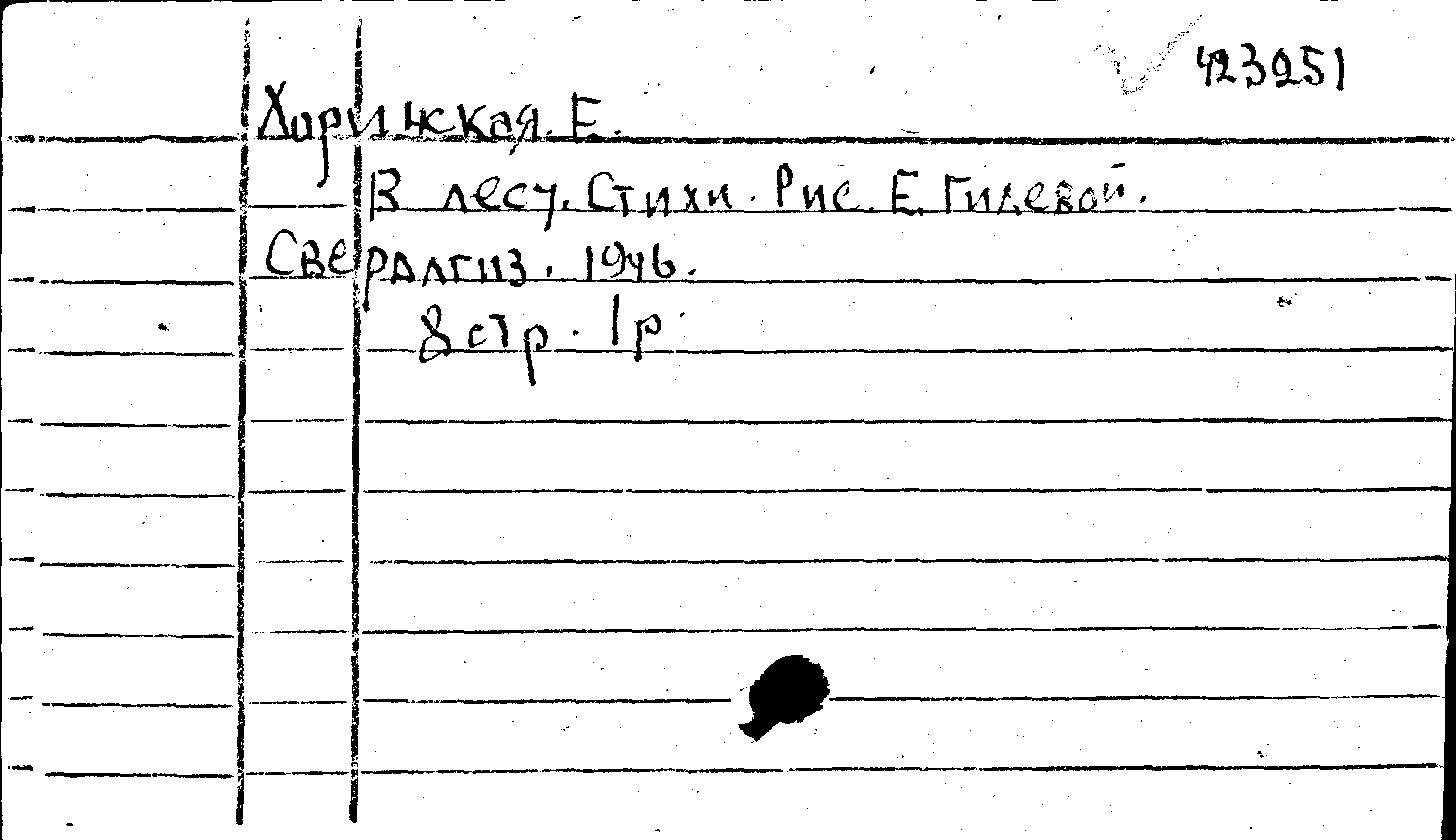 423251
Хоринская. Е.
В лесу. Стихи. Рис. Е. Гилевой.
Свердлгиз. 1946.
8 стр. 1 р.